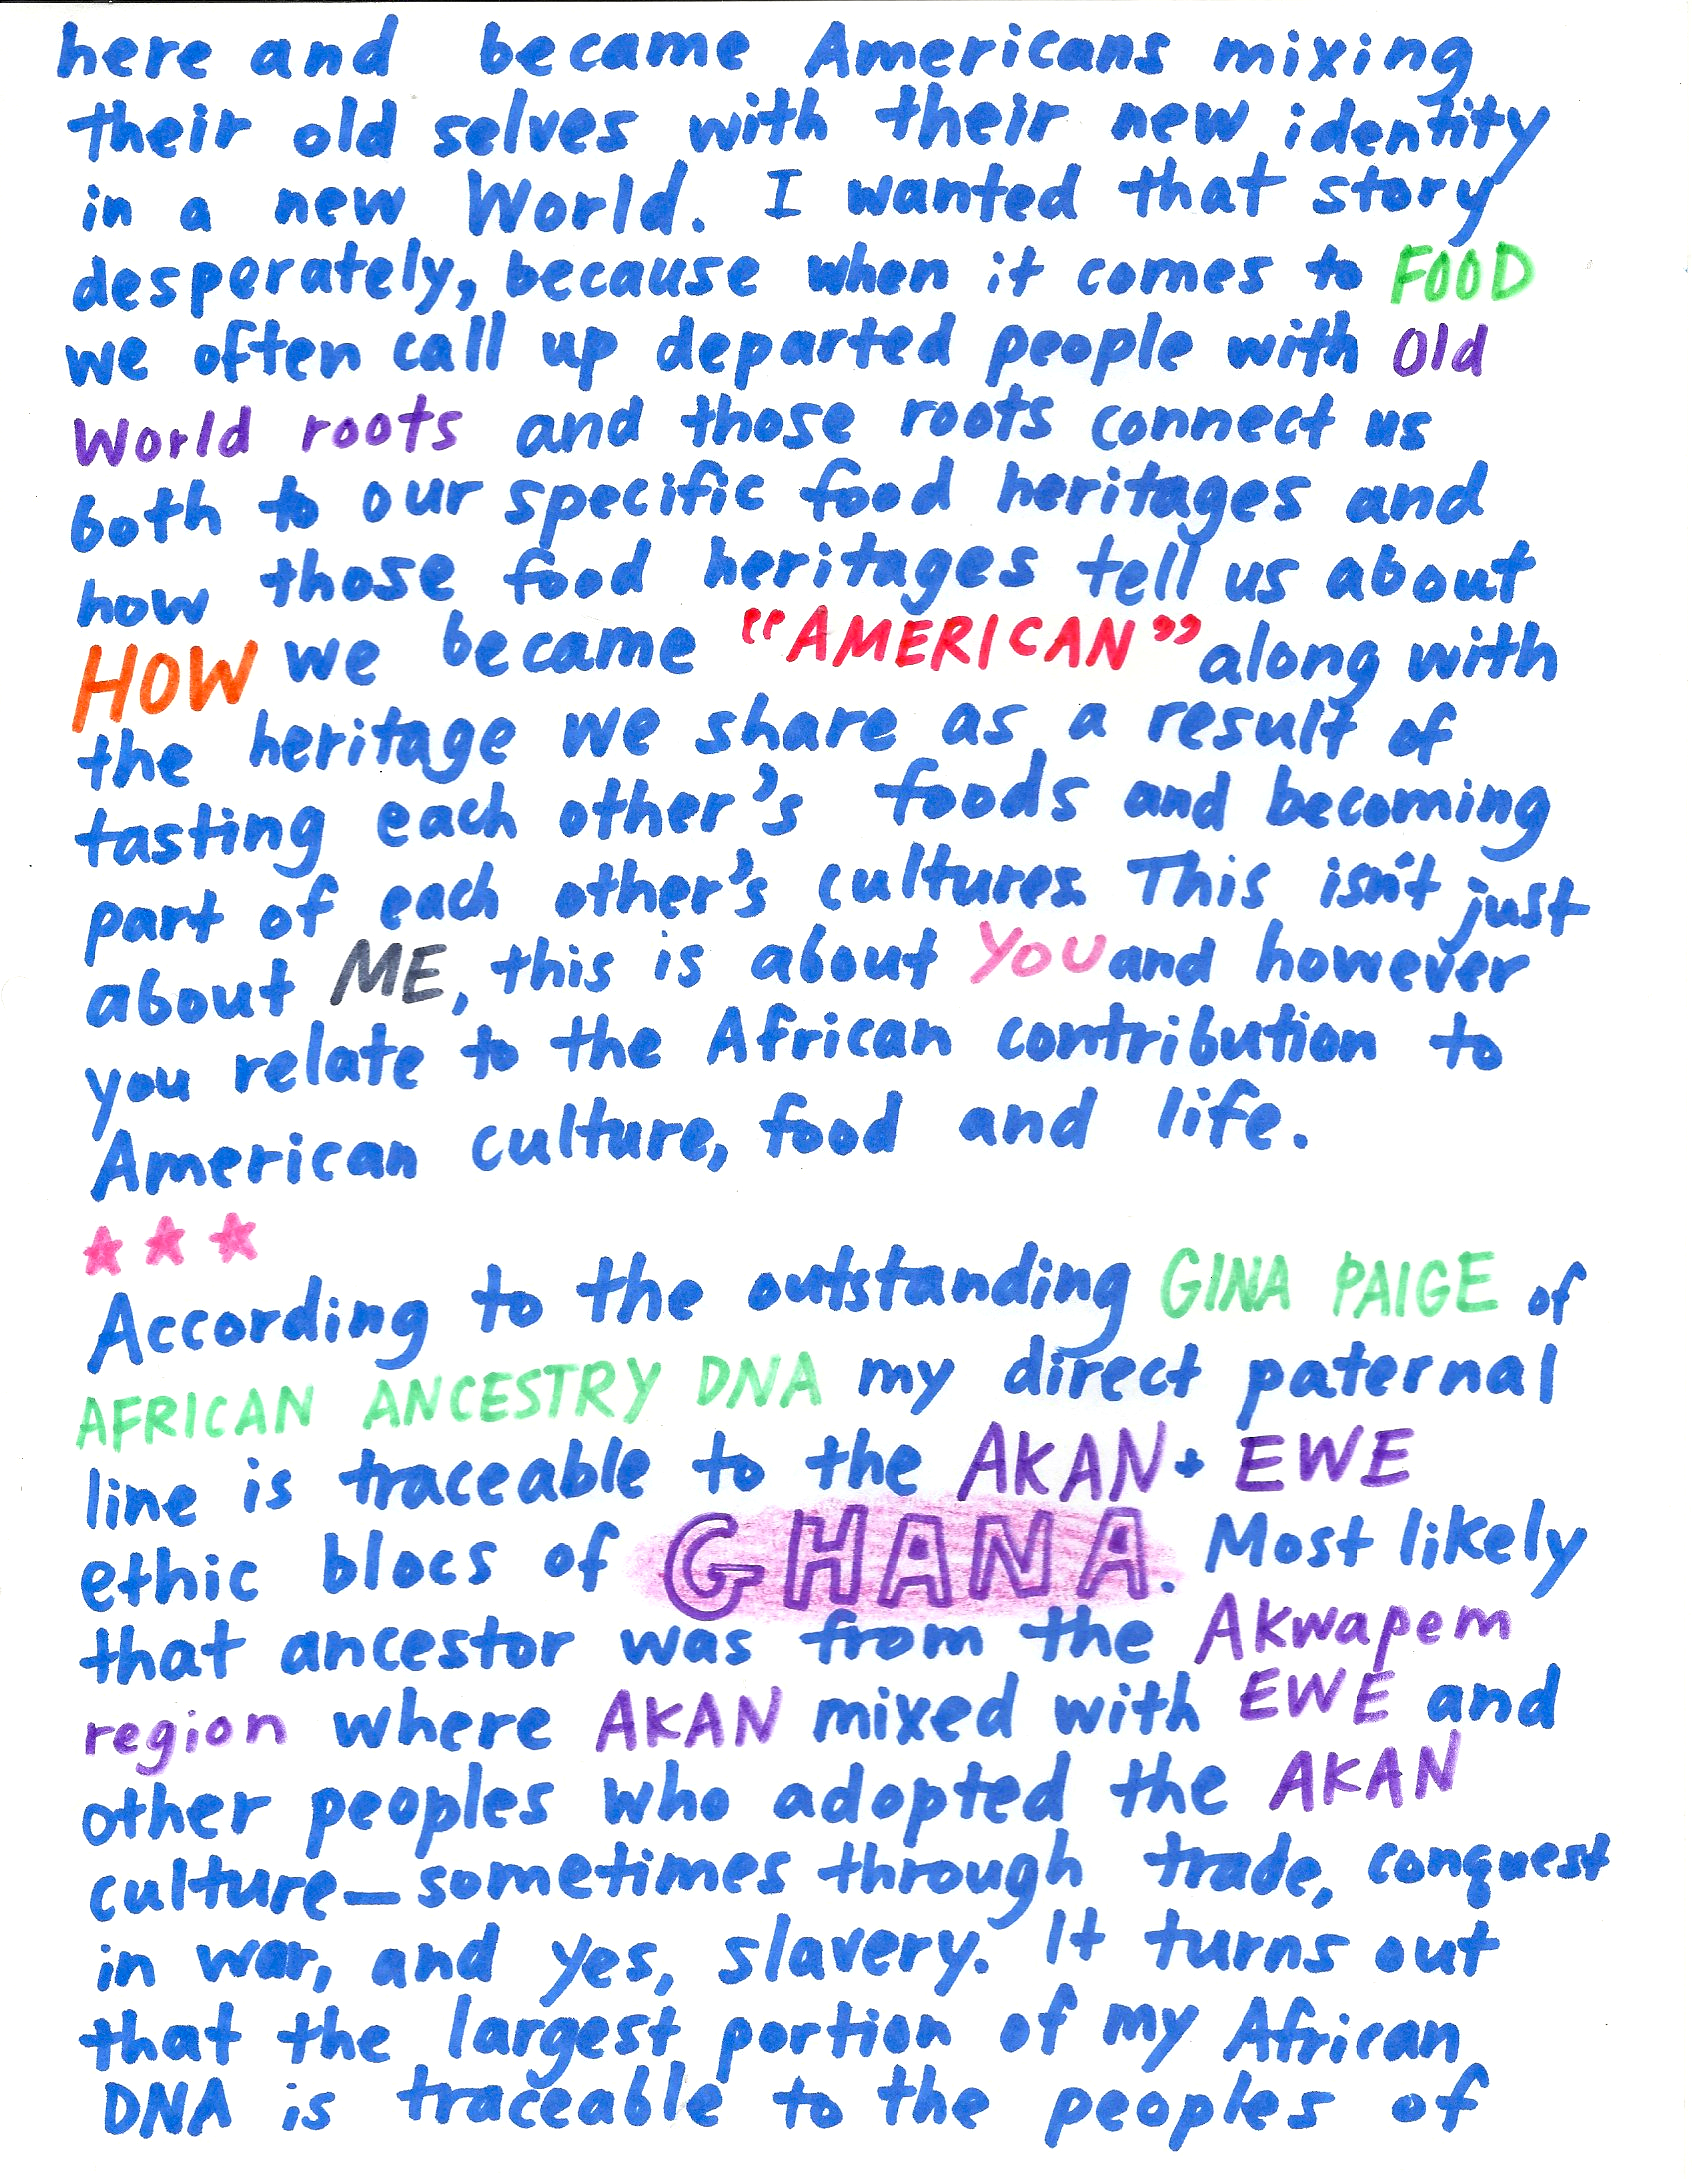 here and became Americans mixing
their old selves with their new identity
in a new World. I wanted that story
desperately, because when it comes to FOOD
we often call up departed people with Old
World roots and those roots connect us
both to our specific food heritages and
how those food heritages tell us about
HOW we became "AMERICAN" along with
the heritage we share as a result of
tasting each other's foods and becoming
part of each other's cultures. This isn't just
about ME, this is about YOU and however
you relate to the African contribution to
American culture, food and life.
★ ★ ★
According to the outstanding GINA PAIGE of
AFRICAN ANCESTRY DNA my direct paternal
line is traceable to the AKAN + EWE
ethic blocs of GHANA. Most likely
that ancestor was from the Akwapem
region where AKAN mixed with EWE and
other peoples who adopted the AKAN
culture—sometimes through trade, conquest
in war, and yes, slavery. It turns out
that the largest portion of my African
DNA is traceable to the peoples of